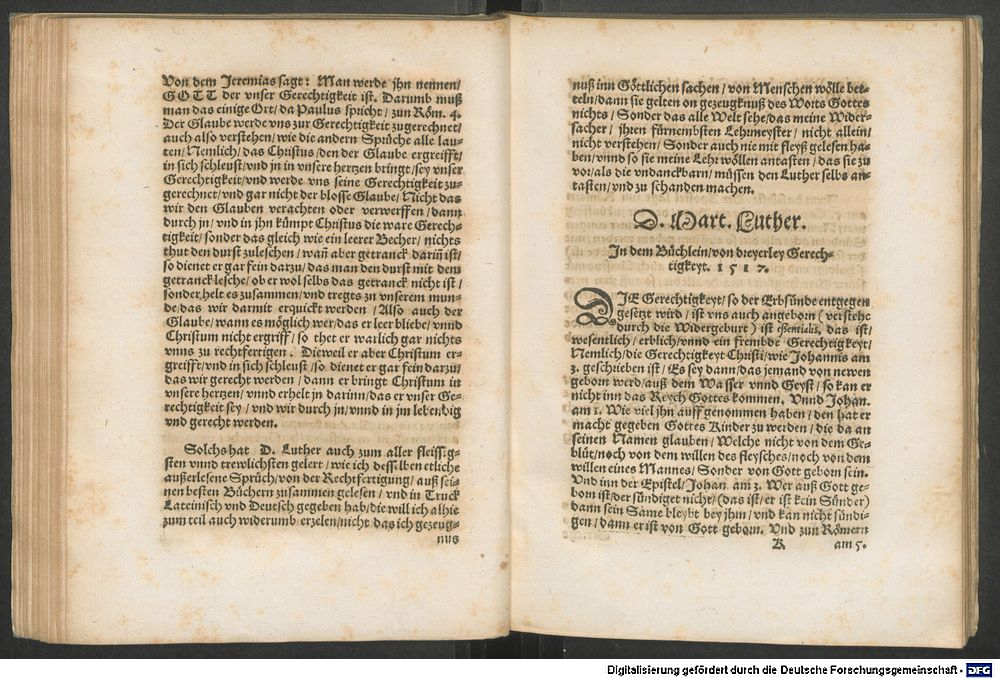 Von dem Jeremias sagt: Man werde jhn nennen/
GOTT der vnser Gerechtigkeit ist. Darumb muß
man das einige Ort/ da Paulus spricht/ zun Röm. 4.
Der Glaube werde vns zur Gerechtigkeit zugerechnet/
auch also verstehen/ wie die andern Sprüche alle lau-
ten/ Nemlich/ das Christus/ den der Glaube ergreifft/
in sich schleust/ vnd jn in vnsere hertzen bringt/ sey vnser
Gerechtigkeit/ vnd werde vns seine Gerechtigkeit zu-
gerechnet/ vnd gar nicht der blosse Glaube/ Nicht das
wir den Glauben verachten oder verwerffen/ dann
durch jn/ vnd in jhn kümpt Christus die ware Gerech-
tigkeit/ sonder das gleich wie ein leerer Becher/ nichts
thut den durst zuleschen/ wañ aber getranck dariñ ist/
so dienet er gar fein darzu/ das man den durst mit dem
getranck lesche/ ob er wol selbs das getranck nicht ist/
sonder helt es zusammen/ vnd tregts zu vnserem mun-
de/ das wir darmit erquickt werden/ Also auch der
Glaube/ wann es möglich wer/ das er leer bliebe/ vnnd
Christum nicht ergriff/ so thet er warlich gar nichts
vnns zu rechtfertigen. Dieweil er aber Christum er-
greifft/ vnd in sich schleust/ so dienet er gar fein darzu/
das wir gerecht werden/ dann er bringt Christum in
vnsere hertzen/ vnnd erhelt jn darinn/ das er vnser Ge-
rechtigkeit sey/ vnd wir durch jn/ vnnd in jm lebendig
vnd gerecht werden.
Solchs hat D. Luther auch zum aller fleissig-
sten vnnd trewlichsten gelert/ wie ich desselben etliche
außerlesene Sprüch/ von der Rechtfertigung/ auß sei-
nen besten Büchern zusammen gelesen/ vnd in Truck
Lateinisch vnd Deutsch gegeben hab/ die will ich alhie
zum teil auch widerumb erzelen/ nicht das ich gezeug-
nus
nuß inn Göttlichen sachen/ von Menschen wölle bet-
teln/ dann sie gelten on gezeugknuß des Worts Gottes
nichts/ Sonder das alle Welt sehe/ das meine Wider-
sacher/ jhren fürnembsten Lehrmeyster/ nicht allein/
nicht verstehen/ Sonder auch nie mit fleyß gelesen ha-
ben/ vnnd so sie meine Lehr wöllen antasten/ das sie zu
vor/ als die vndanckbarn/ müssen den Luther selbs an-
tasten/ vnd zu schanden machen.
D. Mart. Luther.
In dem Büchlein/ von dreyerley Gerech-
tigkeyt. 1517.
DIE Gerechtigkeyt/ so der Erbsünde entgegen
gesetzt wird/ ist vns auch angeborn (verstehe
durch die Widergeburt) ist essentialis, das ist/
wesentlich/ erblich/ vnnd ein frembde Gerechtigkeyt/
Nemlich/ die Gerechtigkeyt Christi/ wie Johannis am
3. geschrieben ist/ Es sey dann/ das jemand von newen
geborn werd/ auß dem Wasser vnnd Geyst/ so kan er
nicht inn das Reych Gottes kommen. Vnnd Johan.
am 1. Wie viel jhn auff genommen haben/ den hat er
macht gegeben Gottes Kinder zu werden/ die da an
seinen Namen glauben/ Welche nicht von dem Ge-
blüt/ noch von dem willen des fleysches/ noch von dem
willen eines Mannes/ Sonder von Gott geborn sein.
Vnd inn der Epistel/ Johan. am 3. Wer auß Gott ge-
born ist/ der sündiget nicht/ (das ist/ er ist kein Sünder)
dann sein Same bleybt bey jhm/ vnd kan nicht sündi-
gen/ dann er ist von Gott geborn. Vnd zun Römern
K am 5.
Digitalisierung gefördert durch die Deutsche Forschungsgemeinschaft - DFG